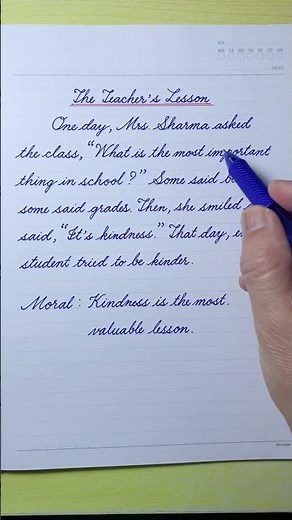 The Teacher's Lesson
One day, Mrs. Sharma asked
the class, "What is the most important
thing in school?" Some said
some said grades. Then, she smiled
said, "It's kindness." That day,
student tried to be kinder.
Moral : Kindness is the most.
valuable lesson.